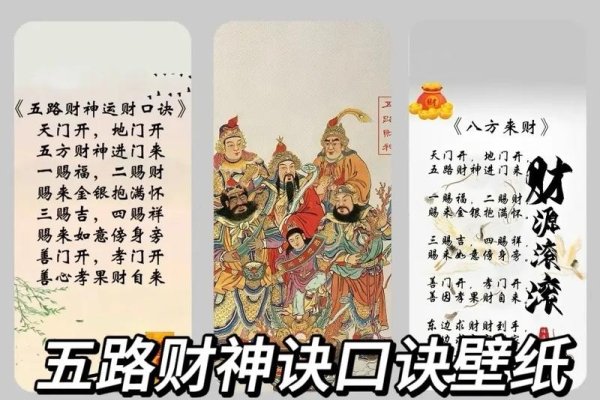 《五路财神运财口诀》
天门开，地门开
五方财神进门来
一赐福，二赐财
赐来金银抱满怀
三赐吉，四赐祥
赐来如意傍身旁
善门开，孝门开
善心孝果财自来
五路财神
财
《八方来财》
天门开，地门开，
五路财神进门来，
一赐福，二赐财，
赐来金银抱满怀，
三赐吉，四赐祥，
赐来如意傍身旁，
善门开，孝门开，
善因孝果财自来，
财源滚滚
五路财神诀口诀壁纸